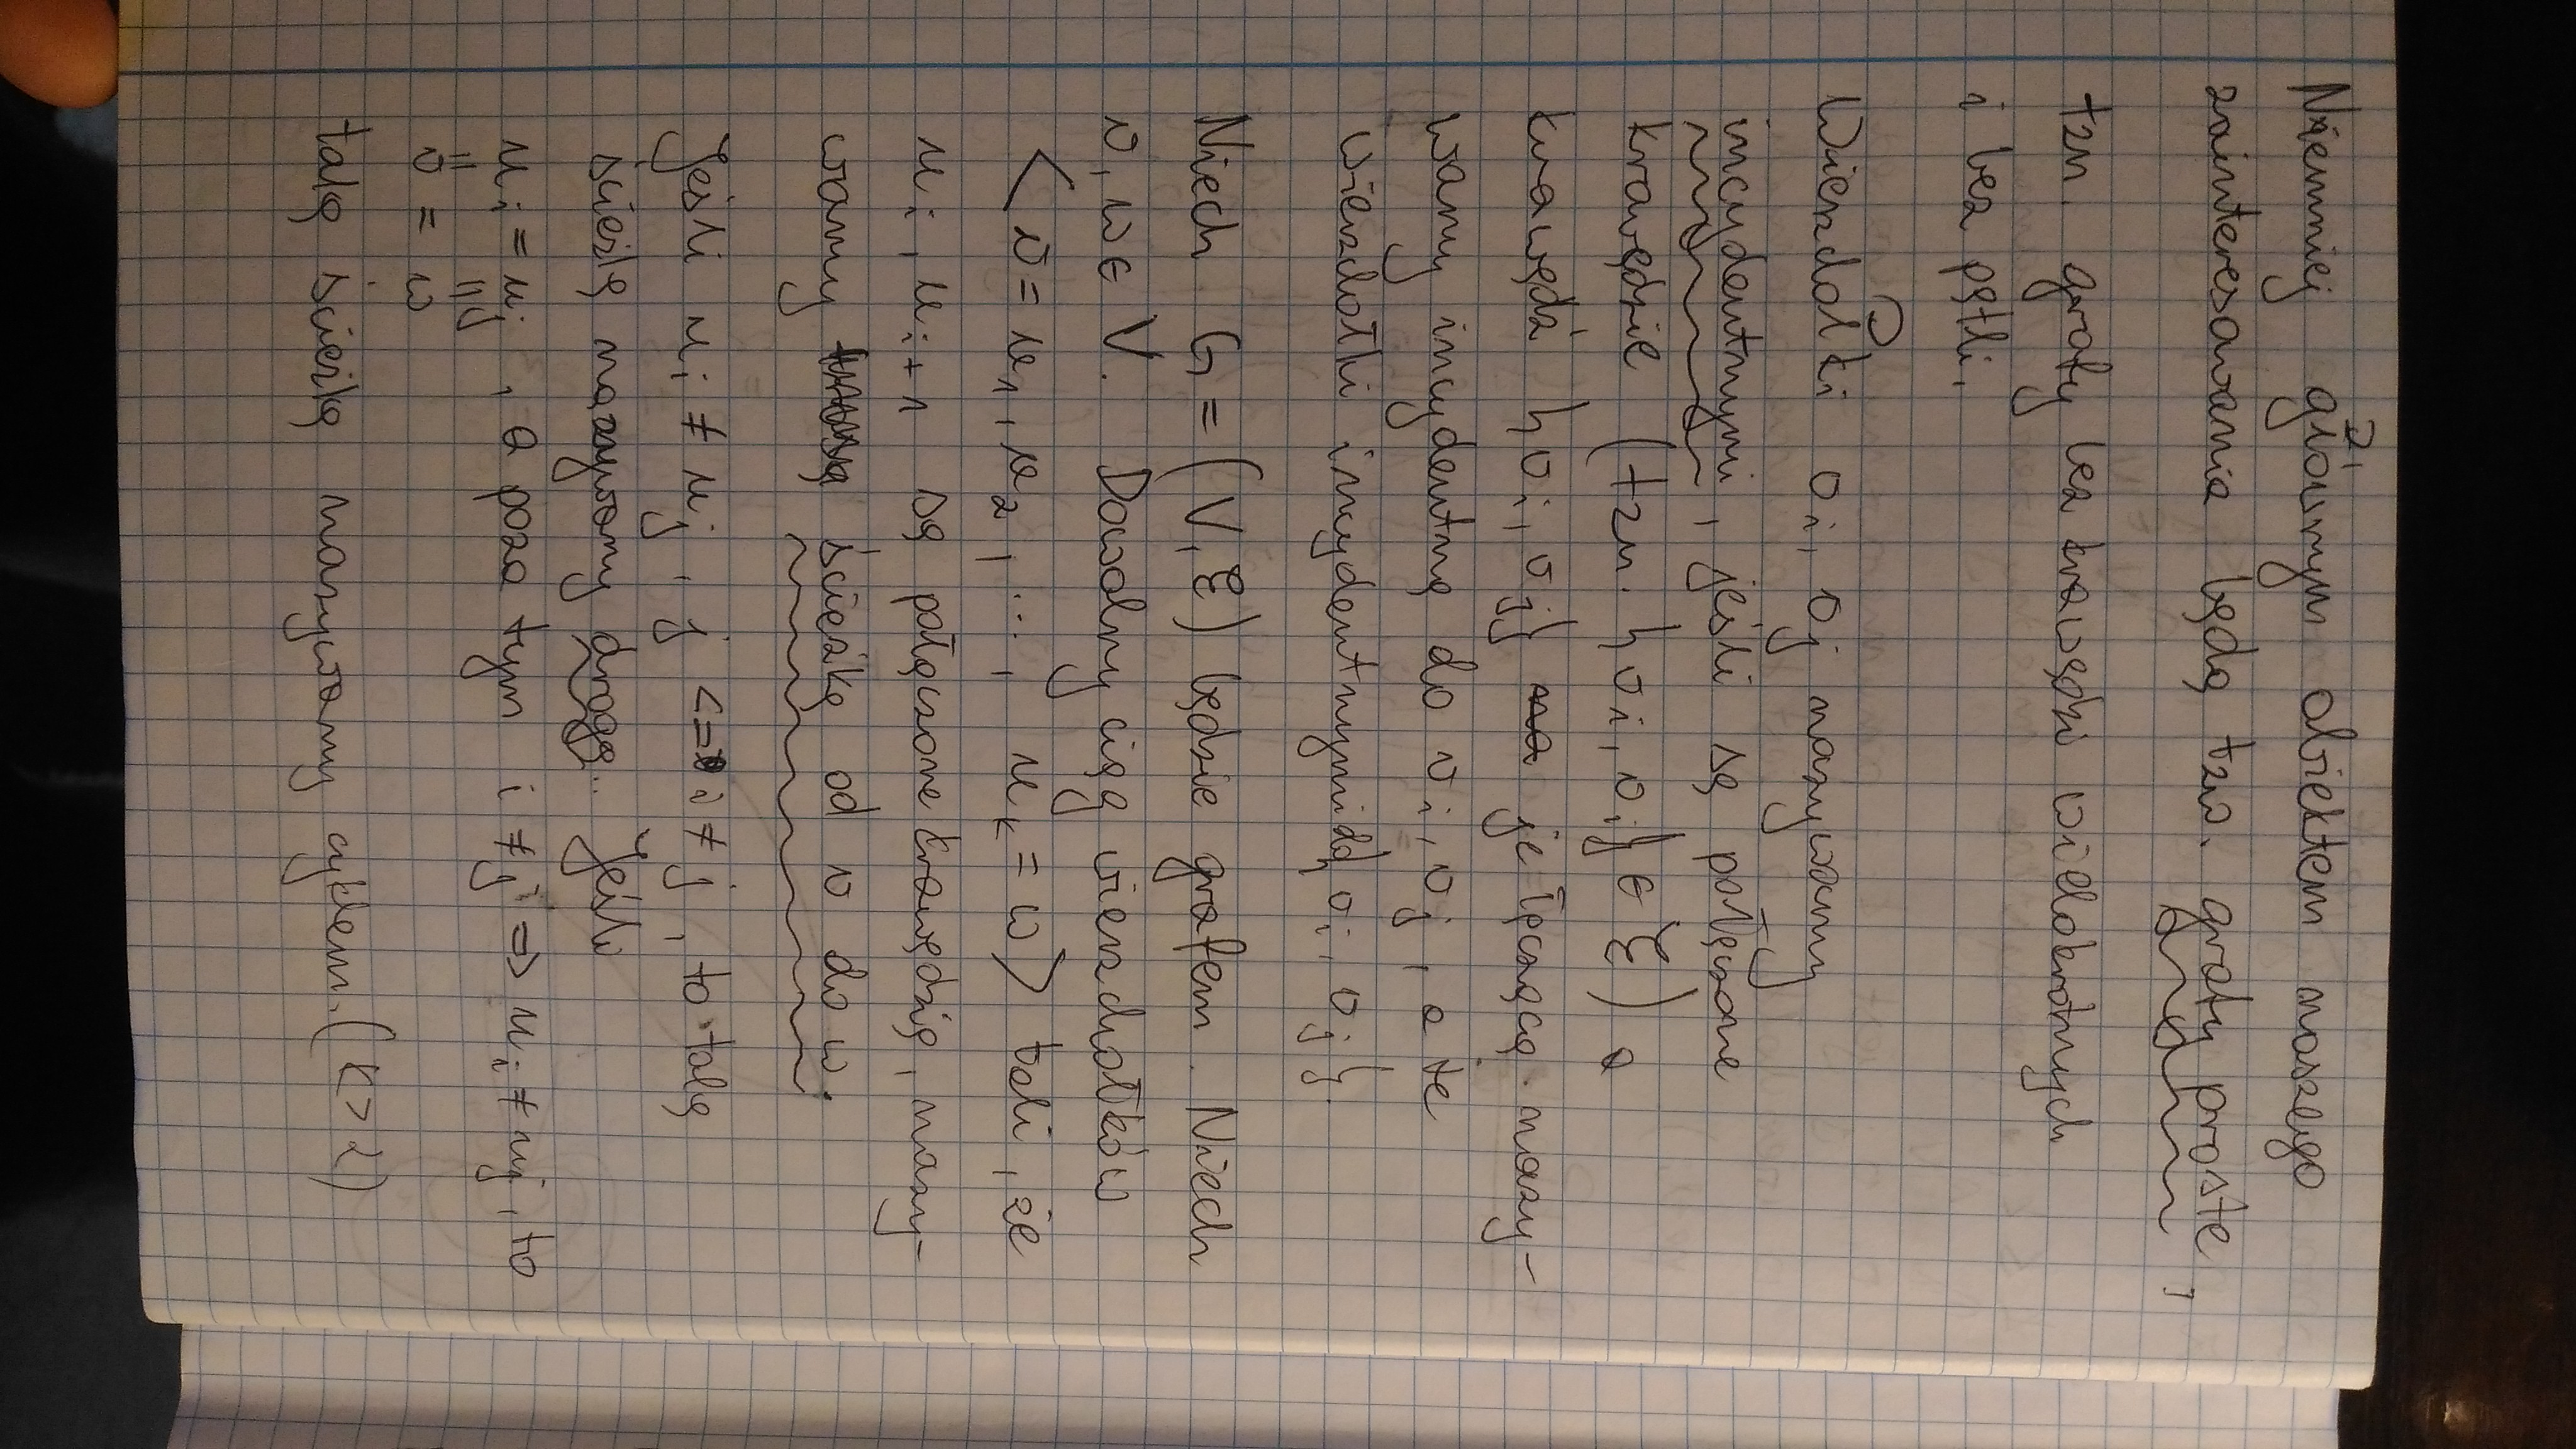 Niemniej głównym obiektem naszego
zainteresowania będą tzw. grafy proste,
tzn. grafy bez krawędzi wielokrotnych
i bez pętli.
Wierzchołki vi, vj nazywamy
incydentnymi, jeśli są połączone
krawędzie (tzn. {vi, vj} ∈ E) a
krawędź {vi, vj} je łączącą nazy-
wamy incydentną do vi, vj, a te
wierzchołki incydentnymi do {vi, vj}.
Niech G = (V, E) będzie grafem. Niech
v, w ∈ V. Dowolny ciąg wierzchołków
<v = u1, u2, ..., uk = w> taki, że
ui, ui+1 są połączone krawędzią, nazy-
wamy ścieżką od v do w.
Jeśli ui ≠ uj, j <=> i ≠ j, to taką
ścieżkę nazywamy drogą. Jeśli
ui = uj, a poza tym i ≠ j => ui ≠ uj, to
v = w
taką ścieżkę nazywamy cyklem. (k > 2)